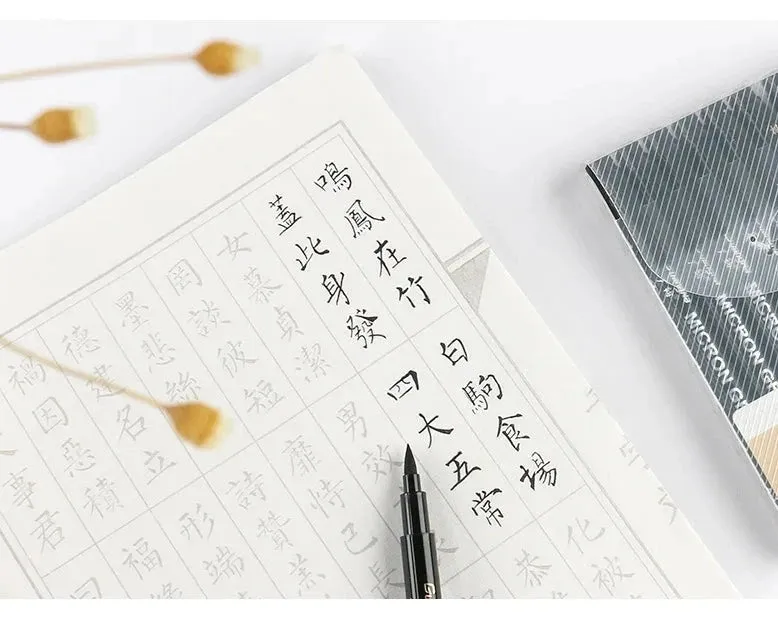 鳴鳳在竹
白駒食場
化被
蓋此身發
四大五常
恭
女慕貞潔
男效
罔談彼短
靡恃己長
墨悲絲
詩贊羔
德建名立
形端
禍因惡積
福
事君
曰
MICRON
MICRON